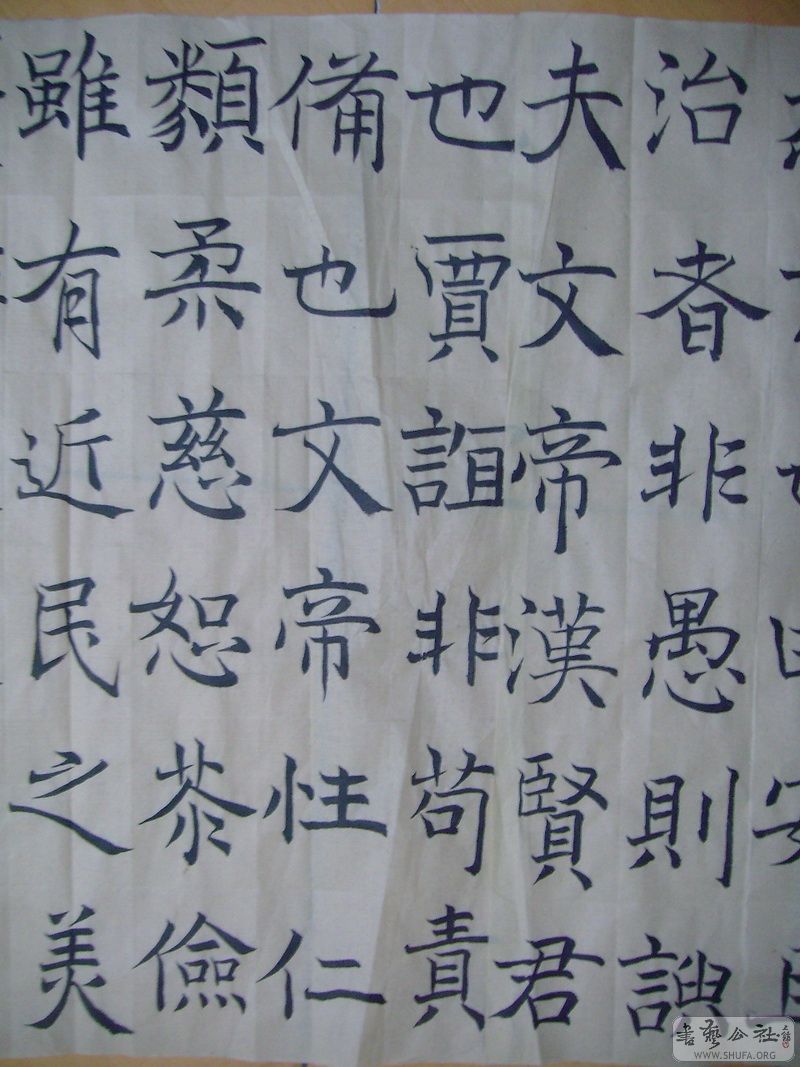 治者非愚則諛
夫文帝漢賢君
也賈誼非苟責
備也文帝性仁
類柔慈恕恭儉
雖有近民之美
書藝公社
WWW.SHUFA.ORG